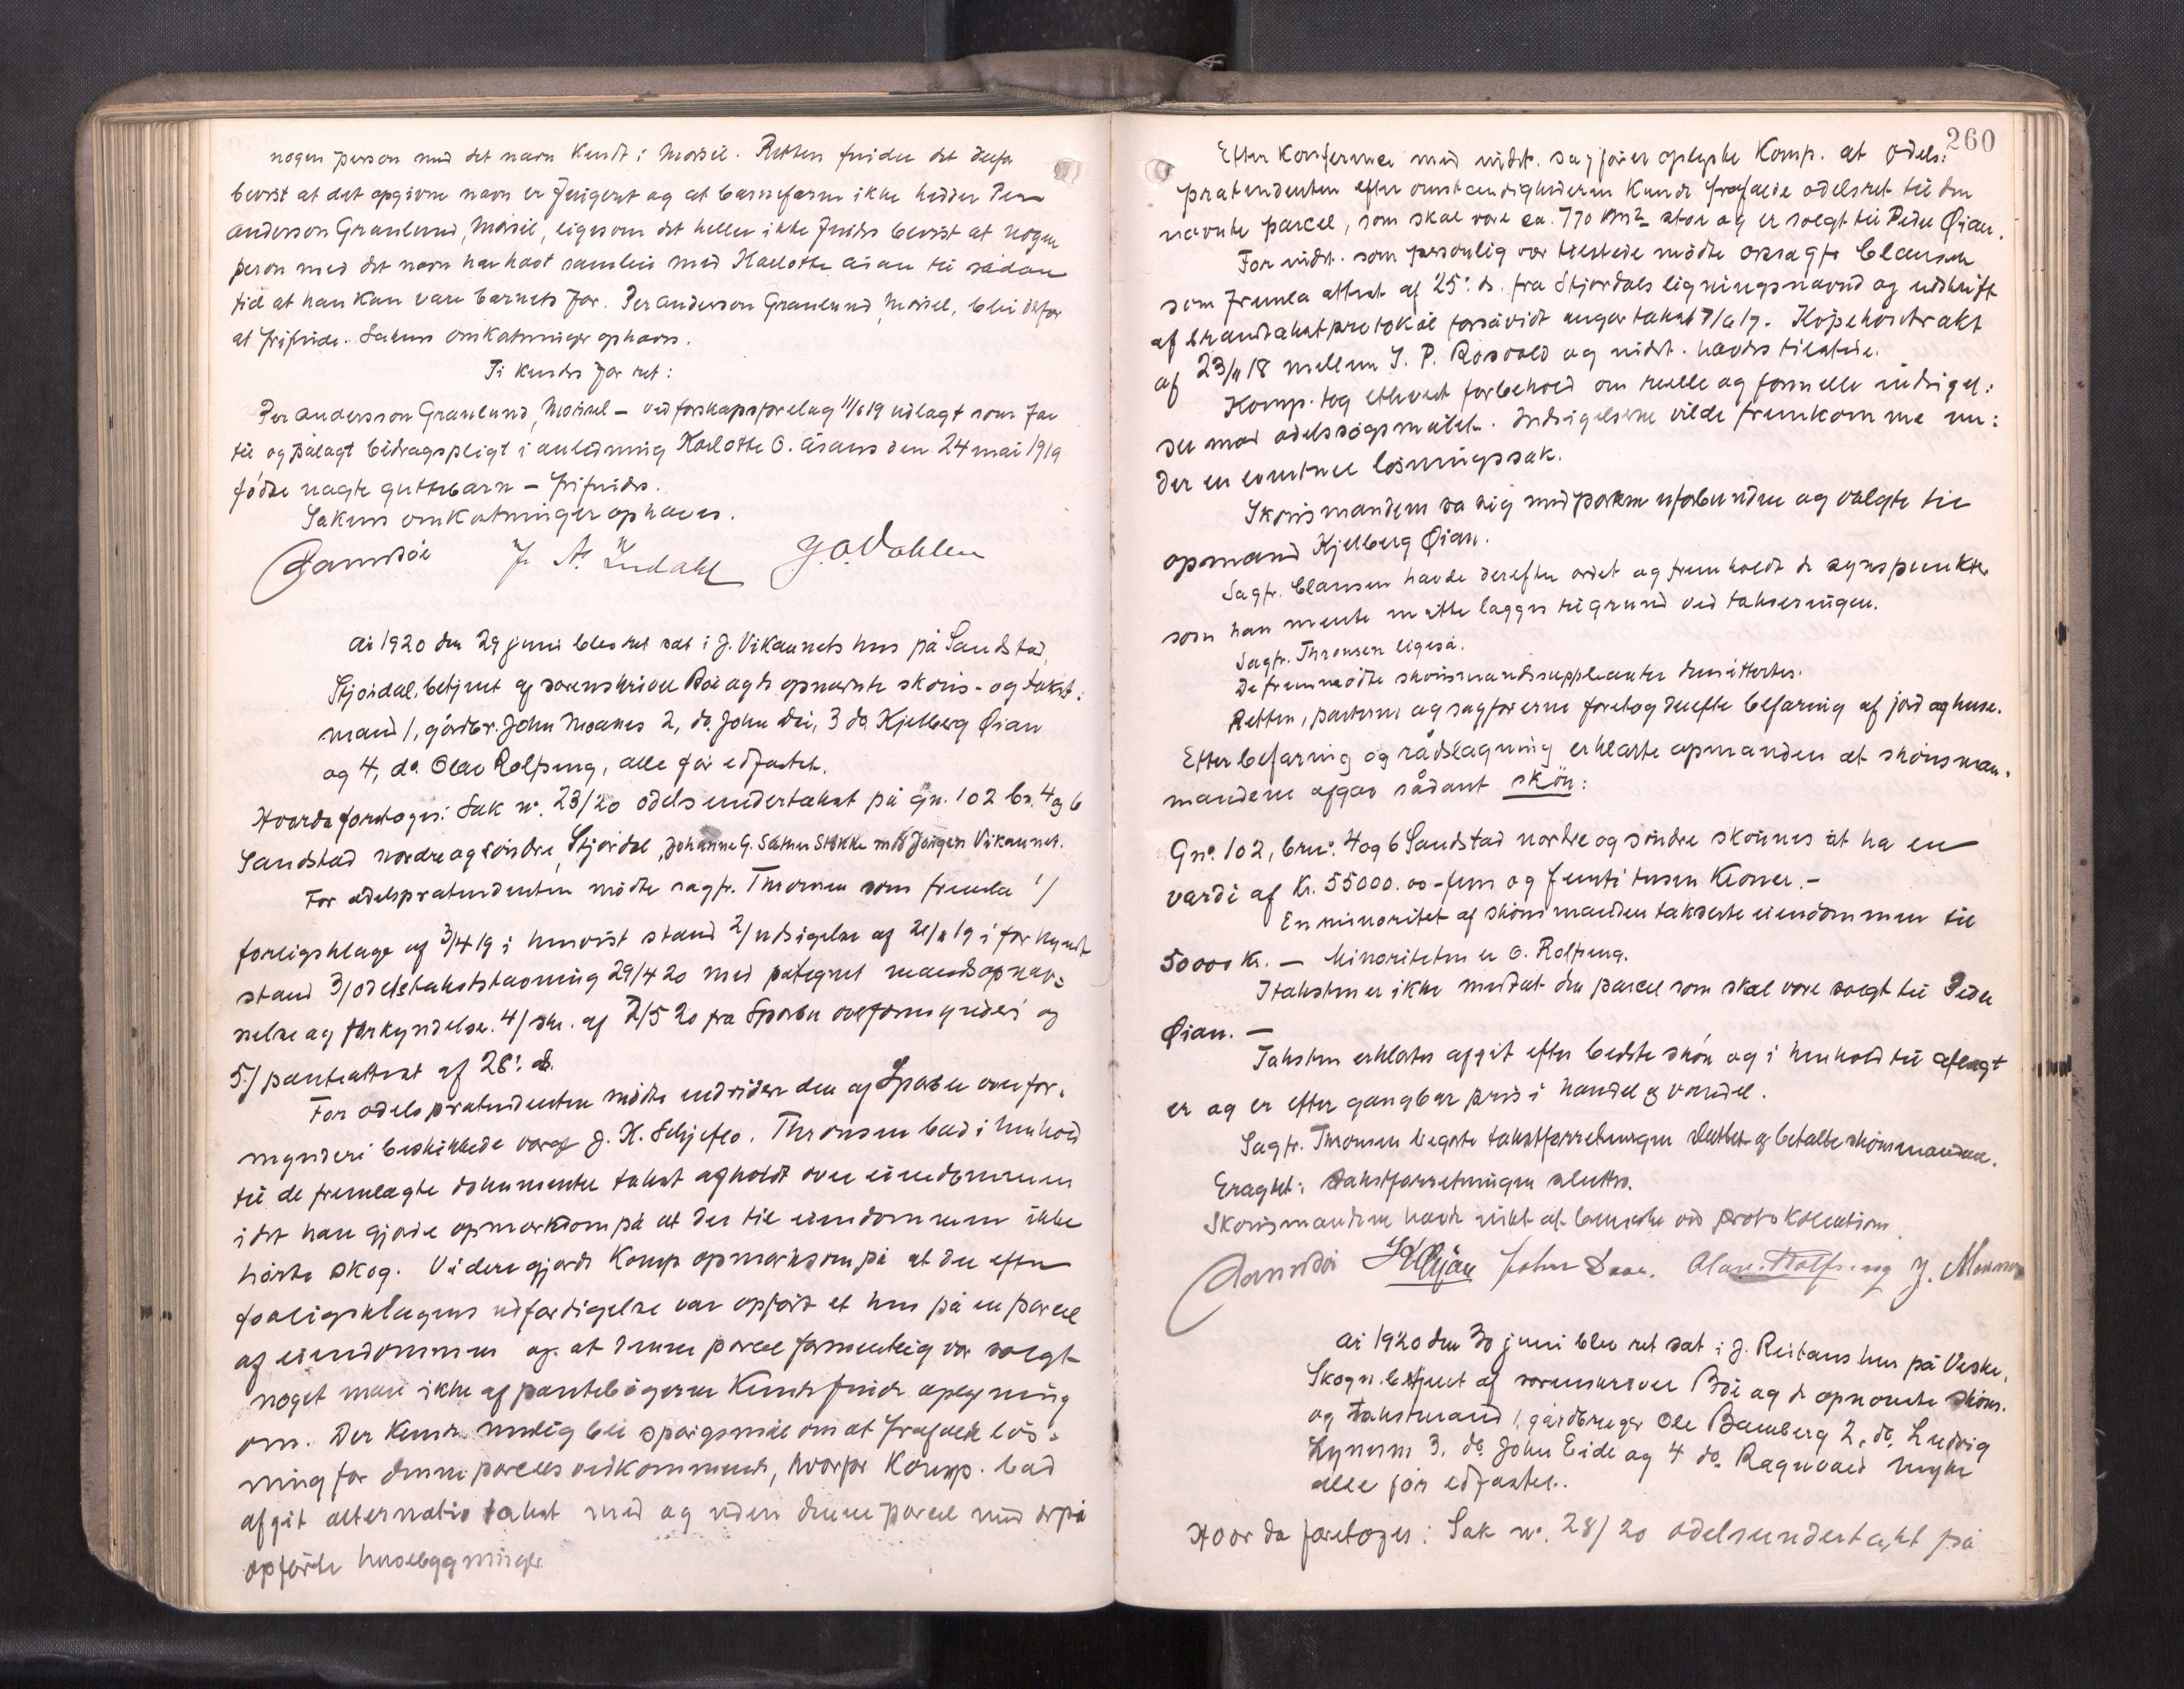 nogen person med det navn kendt i Morsil. Retten finder det derfor
bevist at det opgivne navn er fingeret og at barnefaren ikke hedder Per
Anderson Granlund, Morsil, ligesom det heller ikke findes bevist at nogen
person med det navn har havt samleie med Karlotte Åsan til sådan
tid at han kan være barnets far. Per Anderson Granlund, Morsil, blir derfor
at frifinde. Sakens omkostninger ophæves.
Ti kendes for ret:
Per Andersson Granlund, Morsil – ved farskapsforelæg 11/6 19 utlagt som far
til og pålagt bidragspligt i anledning Karlotte O. Åsans den 24 mai 1919
fødte uægte guttebarn – frifindes.
Sakens omkostninger ophæves.
J. A. Indahl G. O. Dahlen
År 1920 den 29 juni blev ret sat i J. Vikaunets hus på Sandstad,
Stjørdal, betjent af sorenskriver Bøe og de opnævnte skøns- og takst:
mænd 1, gårdbr. John Moanes 2, do. John Dri, 3 do. Kjelberg Øian
og 4, do. Olav Rolfseng, alle før edfæstet.
Hvorda foretoges: Sak nr. 23/20 odelsundertakst på gn. 102 bn. 4 og 6
Sandstad nordre og søndre, Stjørdal, Johanne G. Sætner Stokke mot Jørgen Vikaunet.
For odelsprætendenten mødte sagfr. Thronsen som fremla 1/
forligsklage af 3/4 19 i henvist stand 2/ utsigelse af 21/11 19 i forkyndt
stand 3/ odelstakststævning 29/4 20 med påtegnet mandsopnæv=
nelse og forkyndelse. 4/ skr. af 2/5 20 fra Sparbu overformynderi og
5/ panteattest af 28: ds.
For odelsprætendenten mødte endvidere den af Sparbu overfor=
mynderi beskikkede værge J. K. Schjeflo. Thronsen bad i henhold
til de fremlagte dokumenter takst afholdt over eiendommen
idet han gjorde opmerksom på at der til eiendommen ikke
hørte skog. Videre gjorde Komp opmerksom på at der efter
forligsklagens utfærdigelse var opført et hus på en parcel
af eiendommen og at denne parcel formentlig var solgt
noget man ikke af pantebøgerne kunde finde oplysning
om. Der kunde mulig bli spørgsmål om at frafalde løs=
ning for denne parcels vedkommende, hvorfor Komp. bad
afgit alternativ takst med og uten denne parcel med derpå
opførte husebygninger.
260
Efter konferance med vidst. sagfører oplyste Komp. at odels:
prætendenten efter omstændigheterne kunde frafalde odelsret til den
nævnte parcel, som skal være ca. 770 m² stor og er solgt til Peder Øian.
For indst. som personlig var tilstede mødte orsagfr Clausen
som fremla attest af 25: ds. fra Stjørdals ligningsnævnd og utskrift
af brandtakstprotokol forsåvidt angår takst 7/6 17. Kjøpekontrakt
af 23/11 18 mellem J. P. Rosvold og indst. havdes tilstede.
Komp. tog ethvert forbehold om reelle og formelle indsigel:
ser mot odelssøgsmålet. Indsigelserne vilde fremkomme un:
der en eventuel løsningssak.
Skønsmændene sa sig med parterne uforbundne og valgte til
opmand Kjelberg Øian.
Sagfr. Clausen havde derefter ordet og fremholdt de synspunkter
som han mente måtte lægges til grund ved takseringen.
Sagfr. Thronsen ligeså.
De fremmødte skønsmandssuppleanter demitteres.
Retten, parterne og sagførerne foretog derefter befaring af jord og huse.
Efter befaring og rådslagning erklærte opmanden at skønsmæn=
mændene afgav sådant skøn:
Gnr. 102, bnr. 4 og 6 Sandstad nordre og søndre skønnes at ha en
værdi af Kr. 55000.00 – fem og femti tusen kroner. –
En minoritet af skønsmænden takserte eiendommen til
50000 Kr. – Minoriteten er O. Rolfseng.
I taksten er ikke medtat den parcel som skal være solgt til Peder
Øian. –
Taksten erklæres afgit efter bedste skøn og i henhold til aflagt
ed og er efter gangbar pris i handel og vandel.
Sagfr. Thronsen begærte takstforretningen sluttet og betalte skønsmændene.
Eragtet: Takstforretningen sluttes.
Skønsmændene havde intet at bemerke ved protokollationen.
K Øyan John Olav Rolfseng J. Moanes
År 1920 den 30 juni blev ret sat i J. Reitans hus på Veske,
Skogn. betjent af sorenskriver Bøe og de opnævnte skøns.
og takstmænd 1, gårdbruger Ole Bamberg 2, do. Ludvig
Lynum 3. do. John Eide og 4 do. Ragnvald Myhr
alle før edfæstet.
Hvor da foretoges: Sak nr. 28/20 odelsundertakst på